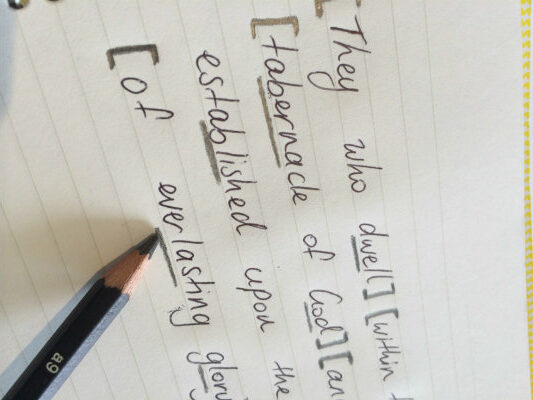 [They who dwell] [within
[tabernacle of God] [an
established upon the
[of everlasting glory
6B